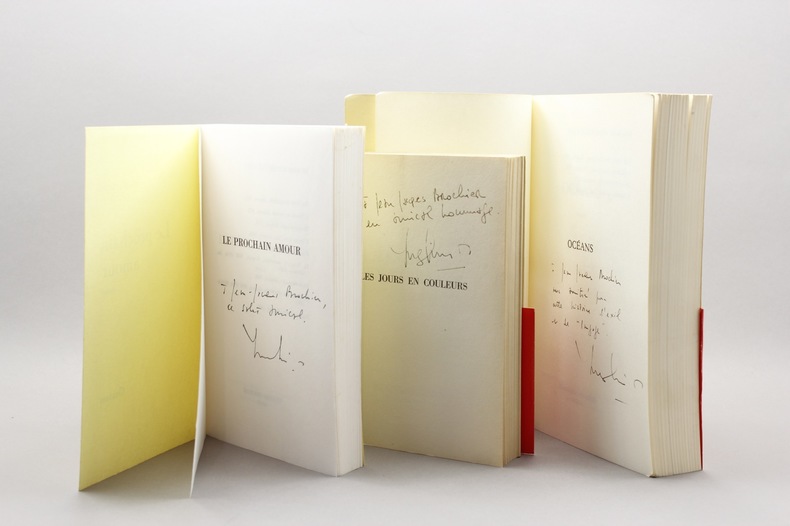 LE PROCHAIN AMOUR
à Jean-Jacques Brochier,
ce salut amical.
à Jean Jacques Brochier
en amical hommage.
LES JOURS EN COULEURS
OCÉANS
à Jean Jacques Brochier
cette histoire d'exil
et de "langage".